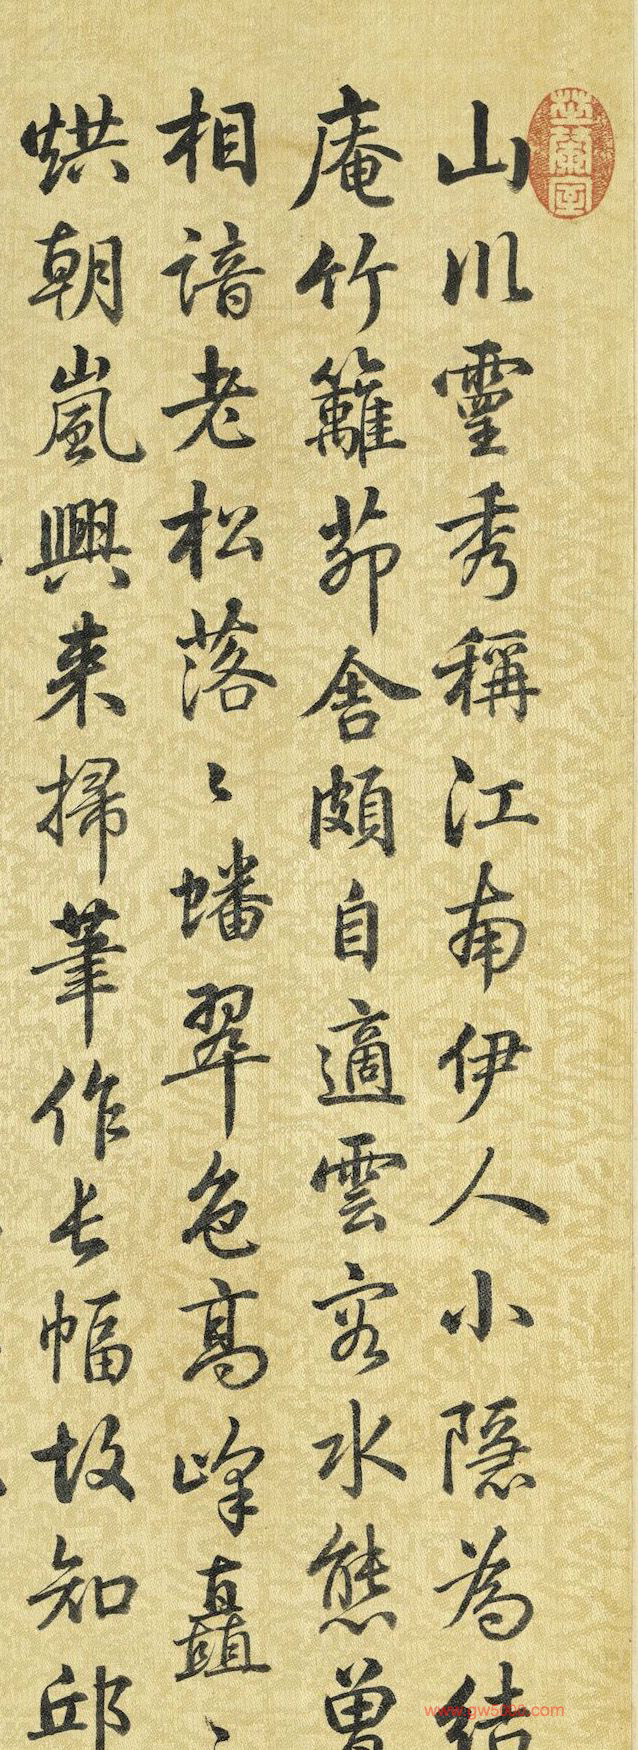 山川靈秀稱江南伊人小隱為結
庵竹籬茆舍頗自適雲容水態曾
相諳老松落〻蟠翠色高峰矗〻
烘朝嵐興来掃筆作長幅故知邱
www.gw5000.com